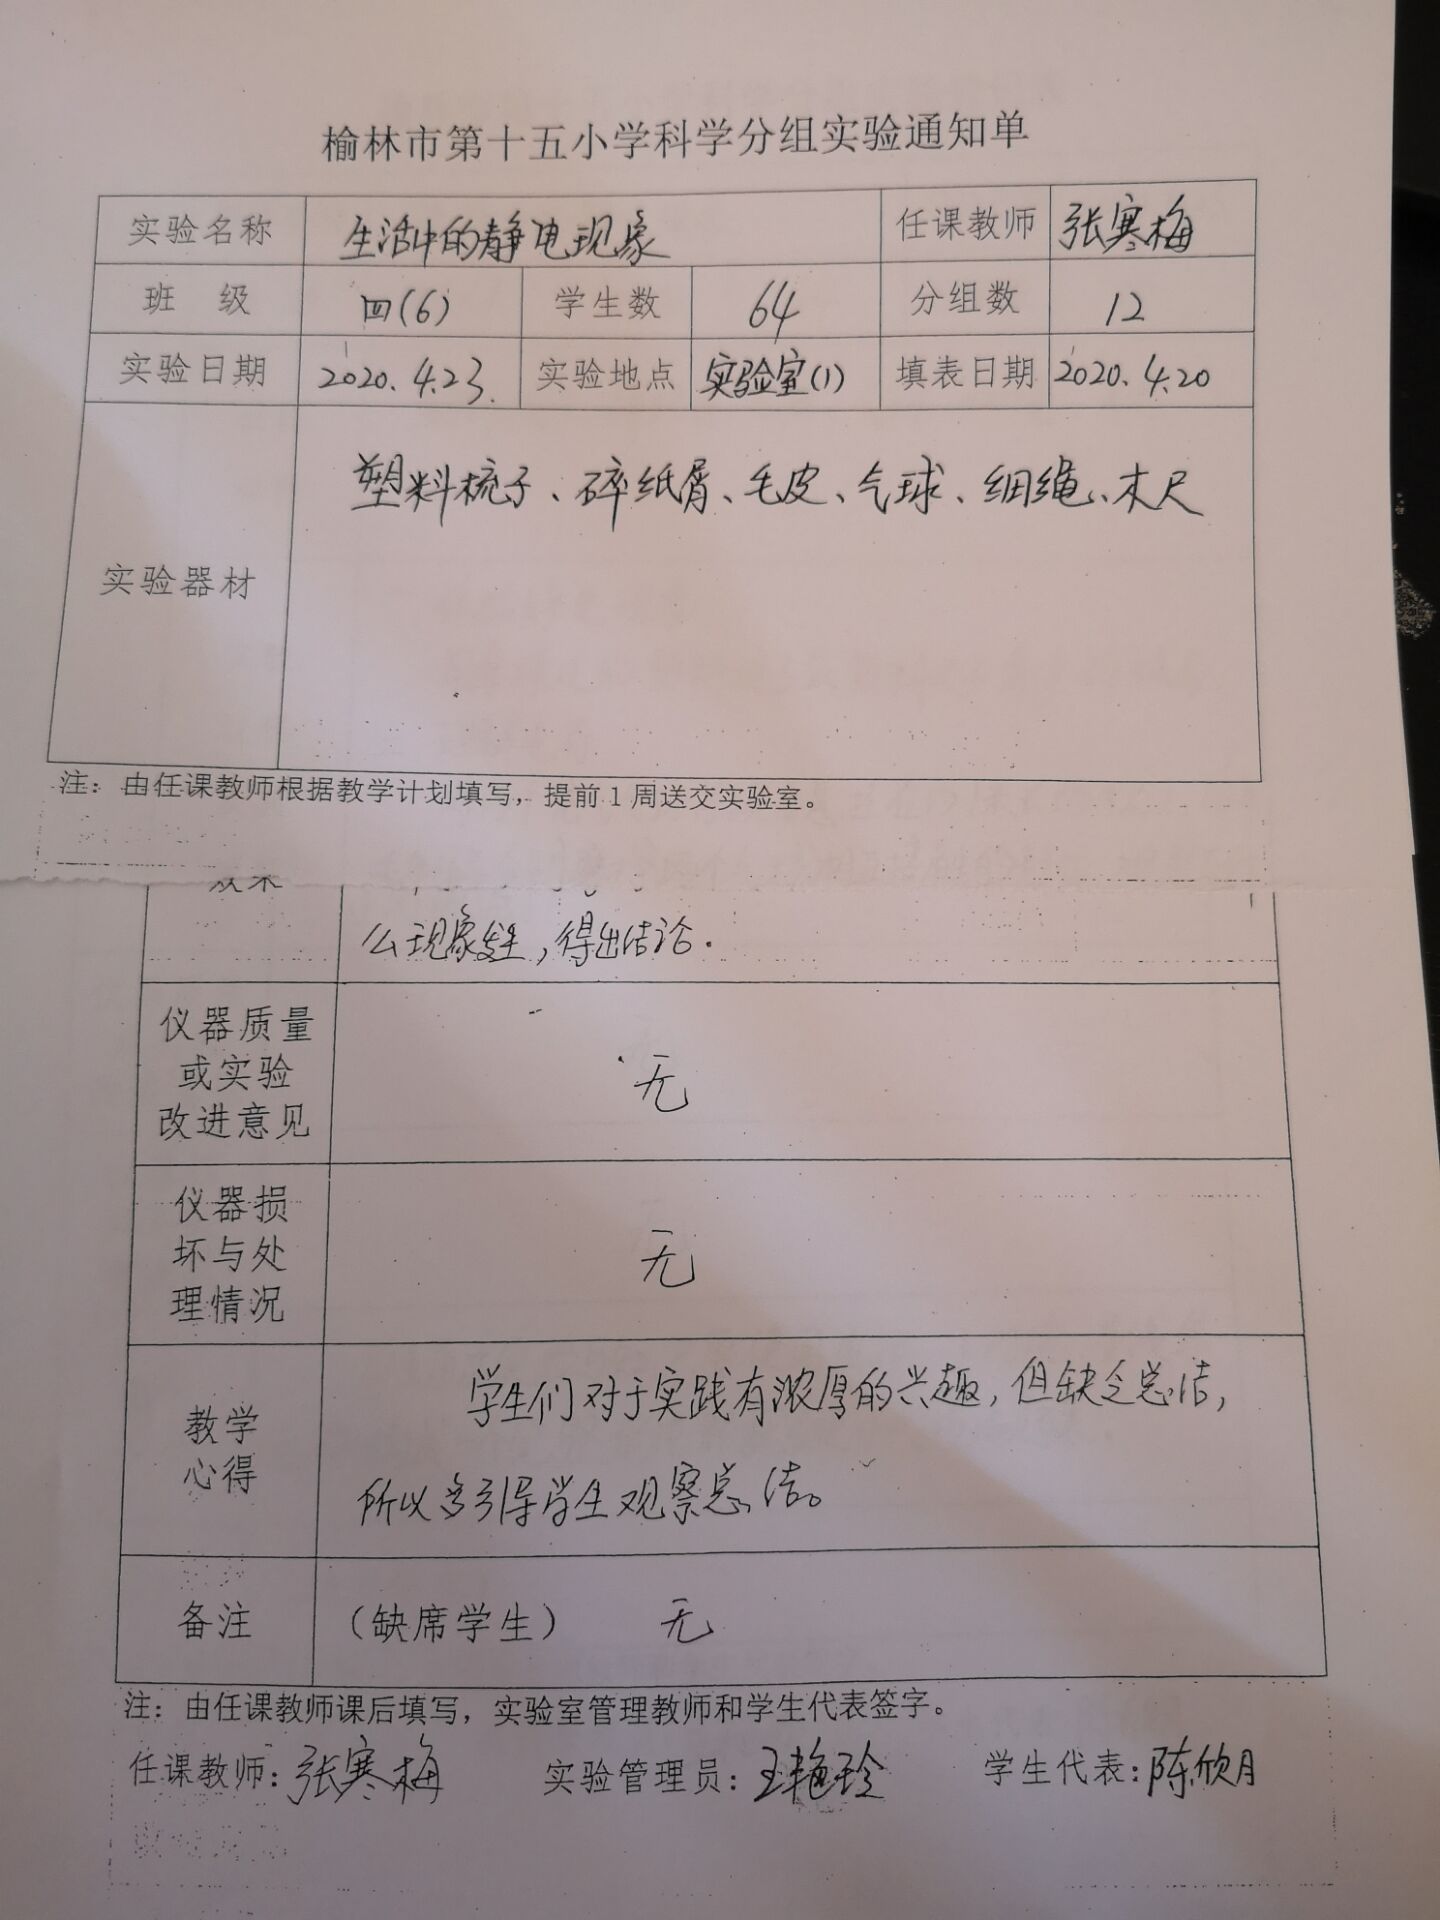 榆林市第十五小学科学分组实验通知单
实验名称 生活中的静电现象 任课教师 张寒梅
班 级 四(6) 学生数 64 分组数 12
实验日期 2020.4.23. 实验地点 实验室(1) 填表日期 2020.4.20
塑料梳子、碎纸屑、毛皮、气球、细绳、木尺
实验器材
注：由任课教师根据教学计划填写，提前1周送交实验室。
效果
么现象发生,得出结论.
仪器质量
或实验
改进意见
无
仪器损
坏与处
理情况
无
教学
心得
学生们对于实践有浓厚的兴趣,但缺乏总结,
所以多引导学生观察总结。
备注 (缺席学生) 无
注：由任课教师课后填写，实验室管理教师和学生代表签字。
任课教师:张寒梅 实验管理员:王艳玲 学生代表:陈欣月